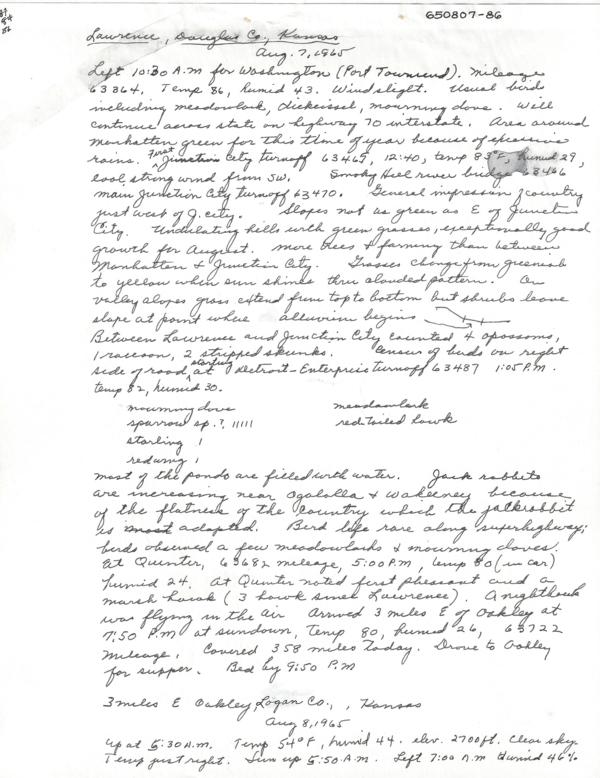 650807-86
Lawrence, Douglas Co., Kansas
Aug. 7, 1965
Left 10:30 A.M for Washington (Port Townsend). Mileage
63364. Temp 86, humid 43. Wind slight. Usual birds
including meadowlark, dickcissel, mourning dove. Will
continue across state on highway 70 interstate. Area around
Manhattan green for this time of year because of excessive
rains. First Junction City turnoff 63465, 12:40, temp 83°F, humid 29,
cool strong wind from SW. Smoky Hill river bridge 63466
main Junction City turnoff 63470. General impression of country
just west of J. city. Slopes not as green as E of Junction
City. Undulating hills with green grasses, exceptionally good
growth for August. more trees & farming than between
Manhattan & Junction City. Grasses change from greenish
to yellow when sun shines thru clouded pattern. On
valley slopes grass extend from top to bottom but shrubs leave
slope at point where alluvium begins
Between Lawrence and Junction City counted 4 opossoms,
1 raccoon, 2 stripped skunks. Census of birds on right
side of road starting at Detroit-Enterprise turnoff 63487 1:05 P.M.
temp 82, humid 30.
mourning dove meadowlark
sparrow sp.?, 11111 red-tailed hawk
starling 1
redwing 1
most of the ponds are filled with water. Jack rabbits
are increasing near Ogalolla & Wakeeney because
of the flatness of the country which the jackrabbit
is most adapted. Bird life rare along superhighway;
birds observed a few meadowlarks & mourning doves.
At Quinter, 63682 mileage, 5:00 P.M, temp 80 (in car)
humid 24. At Quinter noted first pheasant and a
marsh hawk (3 hawk since Lawrence). A nighthawk
was flying in the air Arrived 3 miles E of Oakley at
7:50 P.M at sundown, Temp 80, humid 26, 63722
mileage, Covered 358 miles today. Drove to Oakley
for supper. Bed by 9:50 P.M
3 miles E Oakley Logan Co., , Kansas
Aug 8, 1965
up at 5:30 A.M. Temp 54°F, humid 44. elev. 2700 ft. Clear sky.
Temp just right. Sun up 5:50 A.M. Left 7:00 A.M Humid 46%